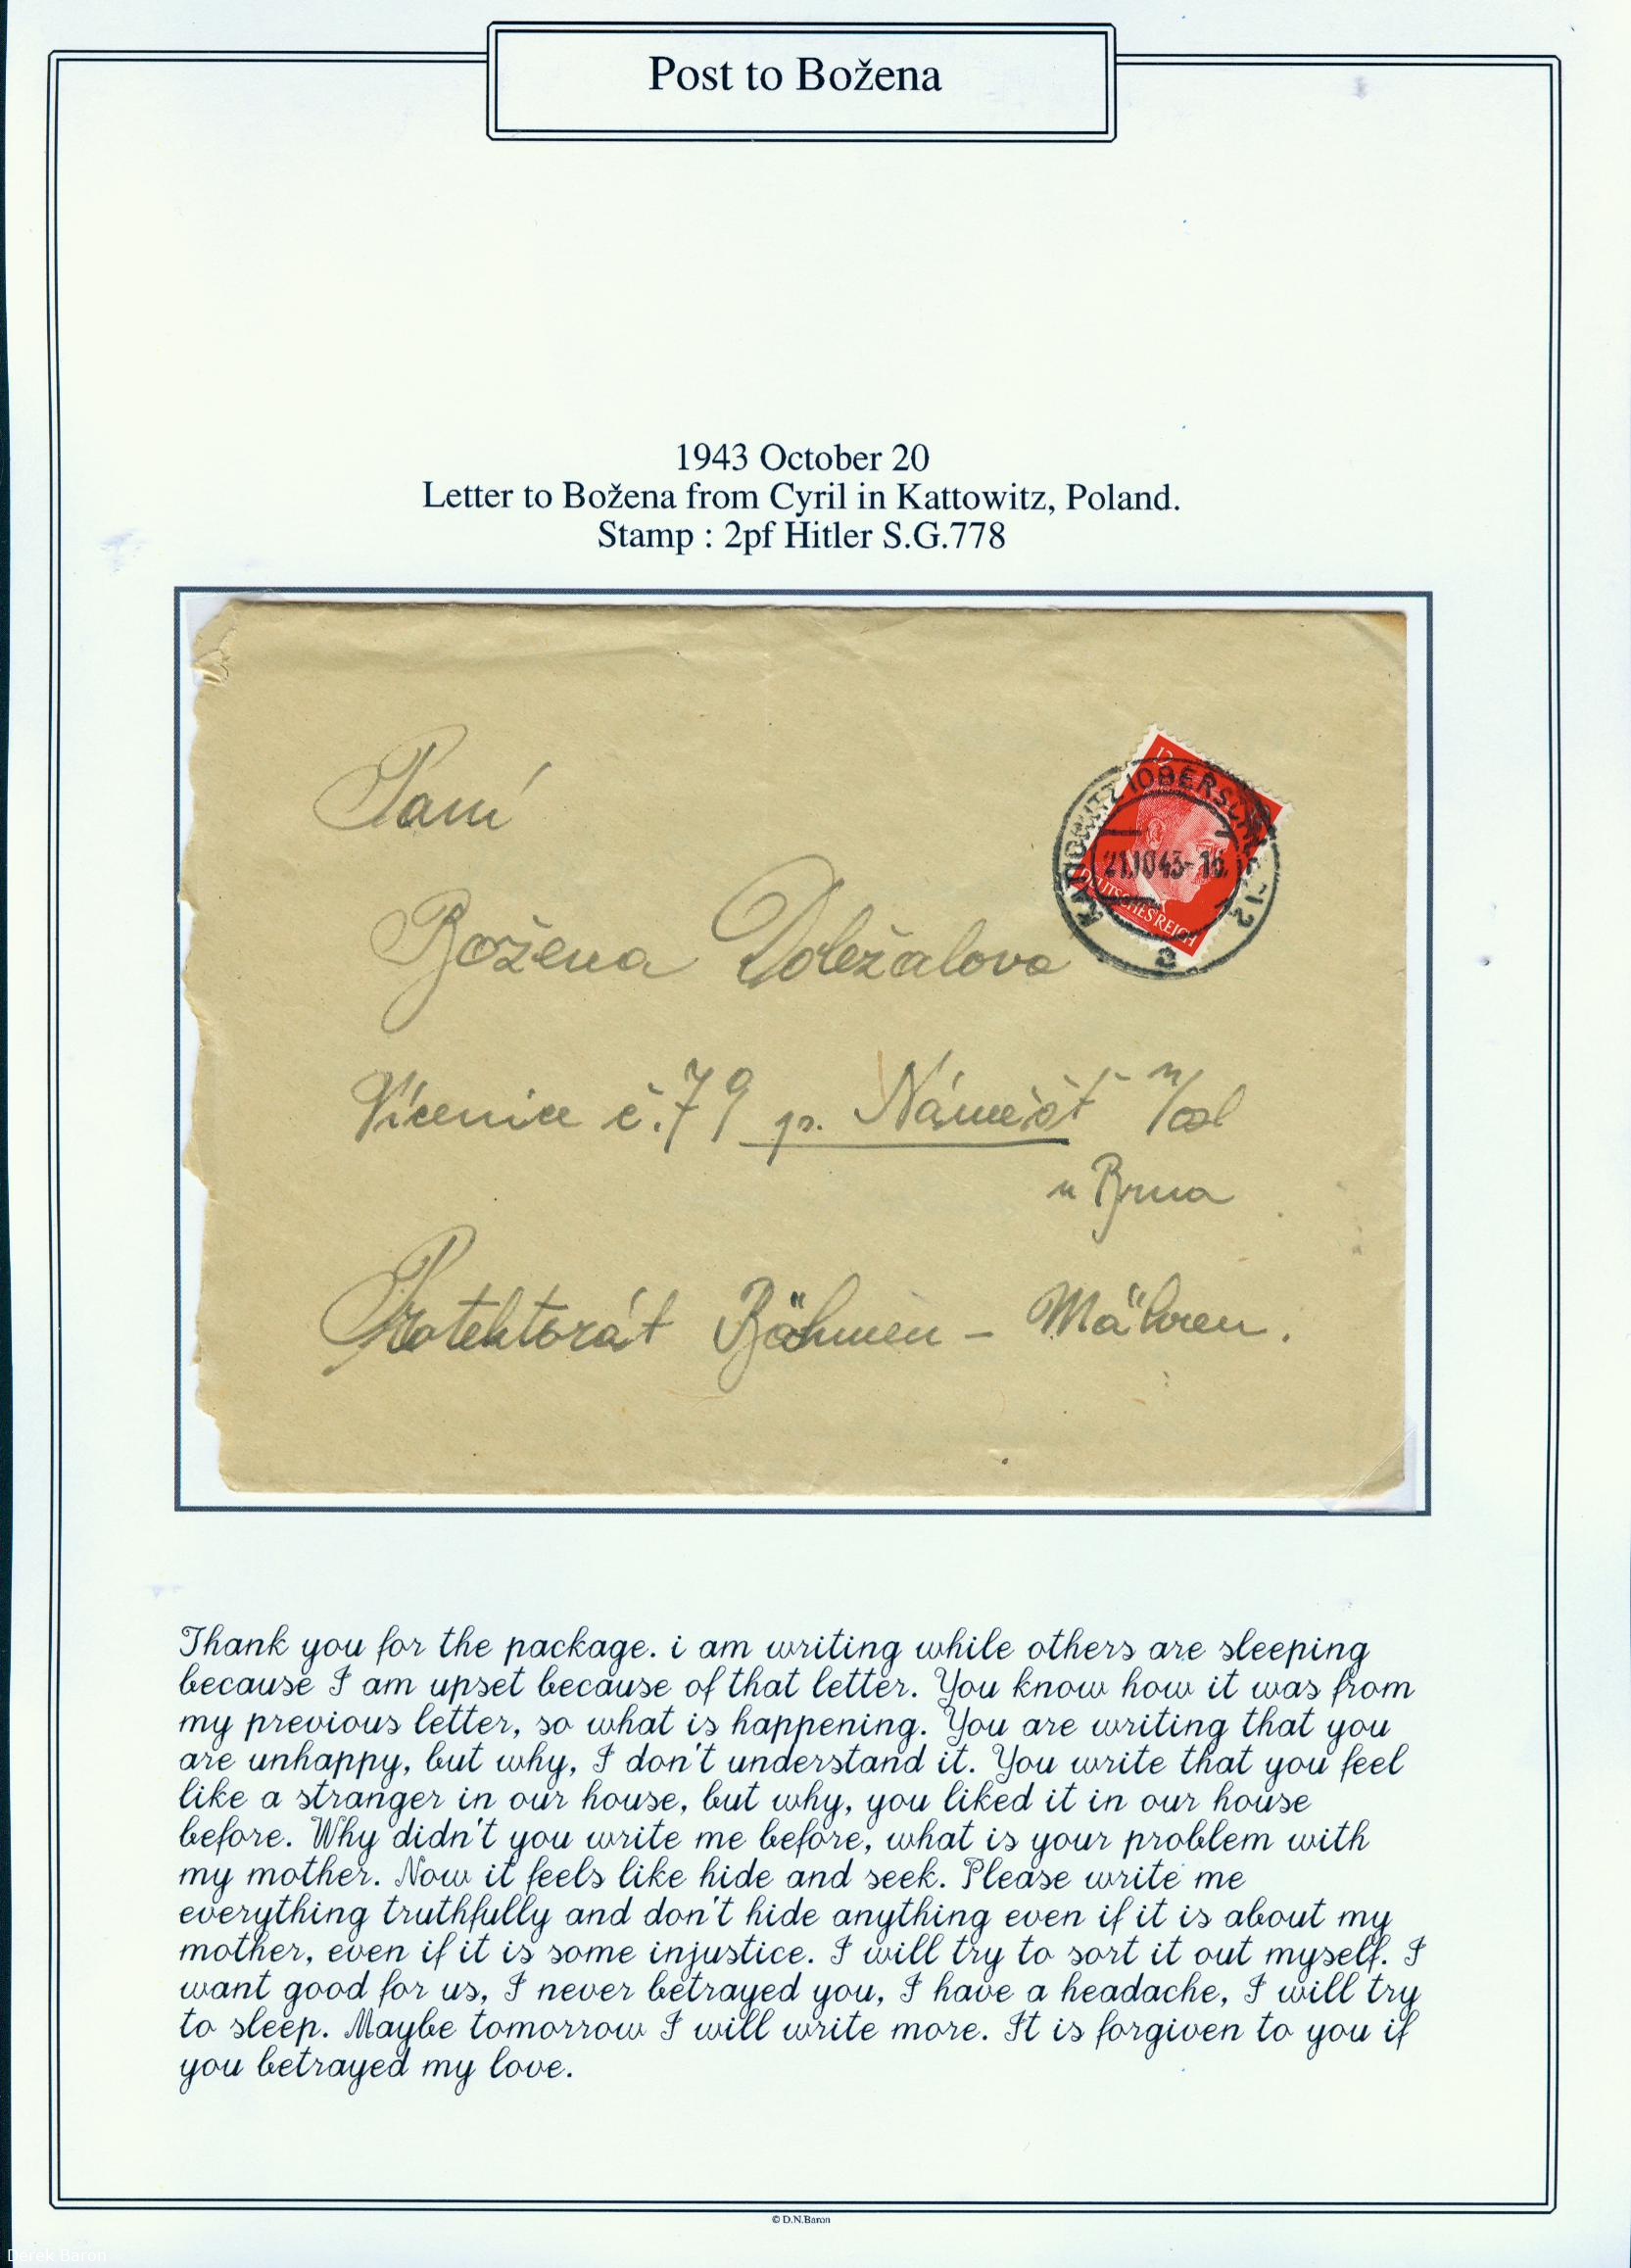 Post to Božena
1943 October 20
Letter to Božena from Cyril in Kattowitz, Poland.
Stamp : 2pf Hitler S.G.778
12
DEUTSCHES REICH
KATTOWITZ (OBERSCHLES) 12
21.10.43-16
a
Paní
Božena Doležalova
Vícenice č.79 p. Náměšt n/Osl
u Brna
Protektorát Böhmen - Mähren.
Thank you for the package. i am writing while others are sleeping
because I am upset because of that letter. You know how it was from
my previous letter, so what is happening. You are writing that you
are unhappy, but why, I don't understand it. You write that you feel
like a stranger in our house, but why, you liked it in our house
before. Why didn't you write me before, what is your problem with
my mother. Now it feels like hide and seek. Please write me
everything truthfully and don't hide anything even if it is about my
mother, even if it is some injustice. I will try to sort it out myself. I
want good for us, I never betrayed you, I have a headache, I will try
to sleep. Maybe tomorrow I will write more. It is forgiven to you if
you betrayed my love.
© D.N.Baron
Derek Baron